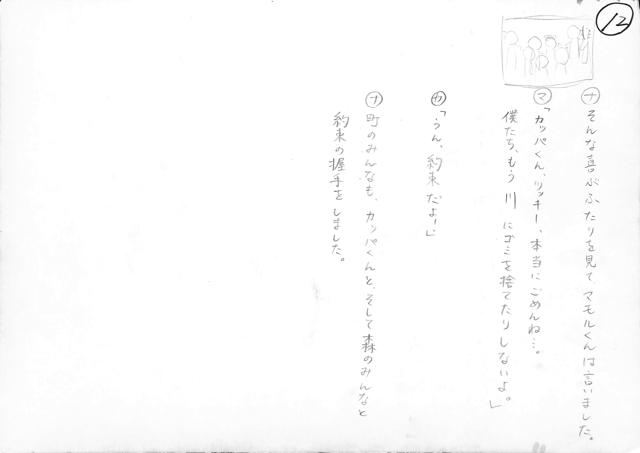 12
ナ そんな喜ぶふたりを見て、マモルくんは言いました。
マ「カッパくん、リッキー、本当にごめんね…。
僕たち、もう川にゴミを捨てたりしないよ。」
カ「うん、約束だよ!」
ナ 町のみんなも、カッパくんと、そして森のみんなと
約束の握手をしました。